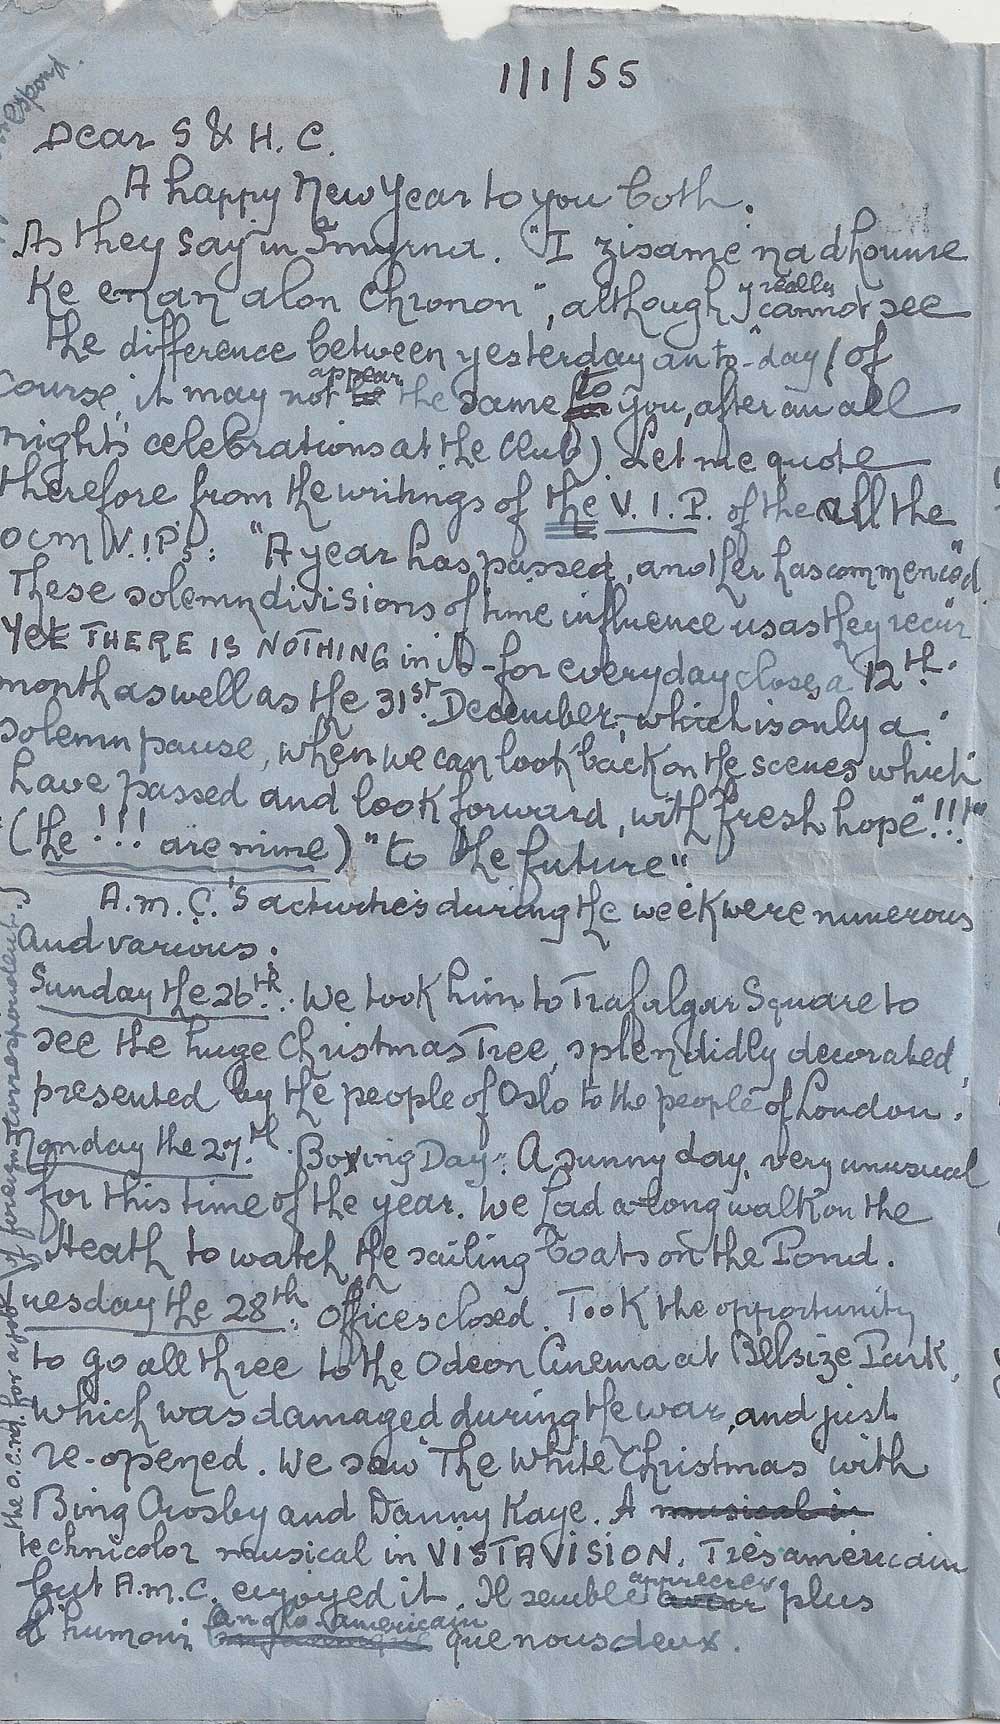 1/1/55
Dear S & H. C.
A happy New Year to you both.
As they say in Smyrna. "I zisame na dhoume
ke enan alon chronon", although I really cannot see
the difference between yesterday an to-day (of
course, it may not appear the same to you, after an all
night's celebrations at the Club). Let me quote
therefore from the writings of the V.I.P. of the all the
OCM V.I.P's: "A year has passed, another has commenced.
These solemn divisions of time influence us as they recur
Yet THERE IS NOTHING in it - for every day closes a 12th.
month as well as the 31st. December, which is only a
solemn pause, when we can look back on the scenes which
have passed and look forward, with fresh hope"!!!"
(the !!! are mine) "to the future".
A.M.C.'s activities during the week were numerous
and various.
Sunday the 26th. We took him to Trafalgar Square to
see the huge Christmas Tree, splendidly decorated,
presented by the people of Oslo to the people of London.
Monday the 27th. Boxing Day. A sunny day, very unusual
for this time of the year. We had a long walk on the
Heath to watch the sailing boats on the Pond.
Tuesday the 28th. Offices closed. Took the opportunity
to go all three to the Odeon Cinema at Bellsize Park,
which was damaged during the war, and just
re-opened. We saw "The White Christmas" with
Bing Crosby and Danny Kaye. A musical in
technicolor musical in VISTAVISION. Très americain
but A.M.C. enjoyed it. Il semble apprecier plus
l'humour anglo-americain que nous deux.
the O.C.M. has a job of foreign correspondent